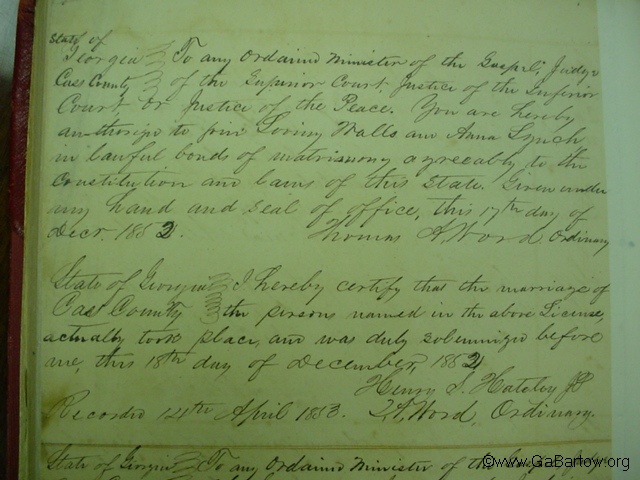 State of
Georgia To any Ordained Minister of the Gospel, Judge
Cass County of the Superior Court, Justice of the Inferior
Court or Justice of the Peace. You are hereby
authorize to join Loviny Walls and Anna Lynch
in lawful bonds of matrimony agreeably to the
Constitution and laws of this State. Given under
my hand and seal of office, this 17th day of
Decr. 1852. Thomas A. Word Ordinary
State of Georgia I hereby certify that the marriage of
Cass County the persons named in the above License,
actually took place, and was duly solemnized before
me, this 18th day of December, 1852
Henry S. JP
Recorded 14th April 1853. T.A. Word, Ordinary.
State of Georgia To any Ordained Minister of the
©www.GaBartow.org